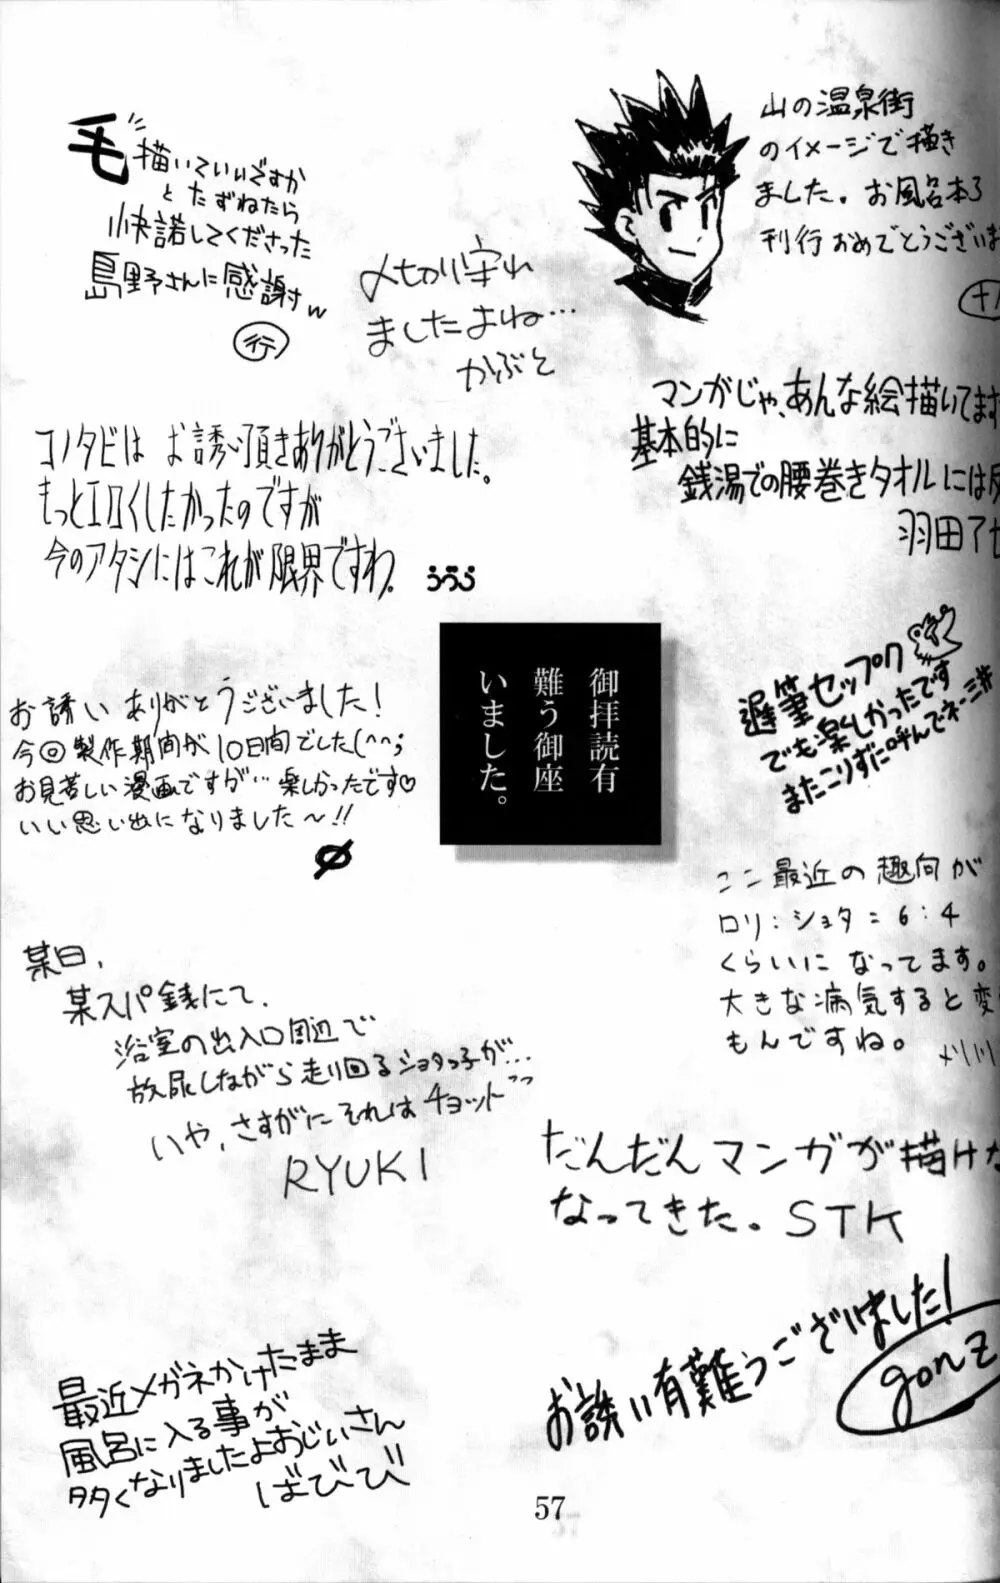 毛描いていいですか
とたずねたら
快諾してくださった
島野さんに感謝w
行
〆切り守れ
ましたよね…
かぶと
山の温泉街
のイメージで描き
ました。お風呂本
刊行おめでとうございま
コノタビは お誘い頂きありがとうございました。
もっとエロくしたかったのですが
今のアタシにはこれが限界ですわ。
うづら
マンガじゃ、あんな絵描いてます
基本的に
銭湯での腰巻きタオルには反
羽田了
御拝読有
難う御座
いました。
お誘いありがとうございました!
今回製作期間が10日間でした(^^;
お見苦しい漫画ですが… 楽しかったです♡
いい思い出になりました〜!!
遅筆セップク
でも楽しかったです
またこりずに呼んでネー
ここ最近の趣向が
ロリ:ショタ=6:4
くらいに なってます。
大きな病気すると変
もんですね。
某日,
某スパ銭にて、
浴室の出入口周辺で
放尿しながら走り回るショタっ子が…
いや,さすがにそれはチョット
RYUKI
だんだんマンガが描けな
なってきた。STK
お誘い有難うございました!
gonz
最近メガネかけたまま
風呂に入る事が
多くなりましたよおじいさん
ばびび
57